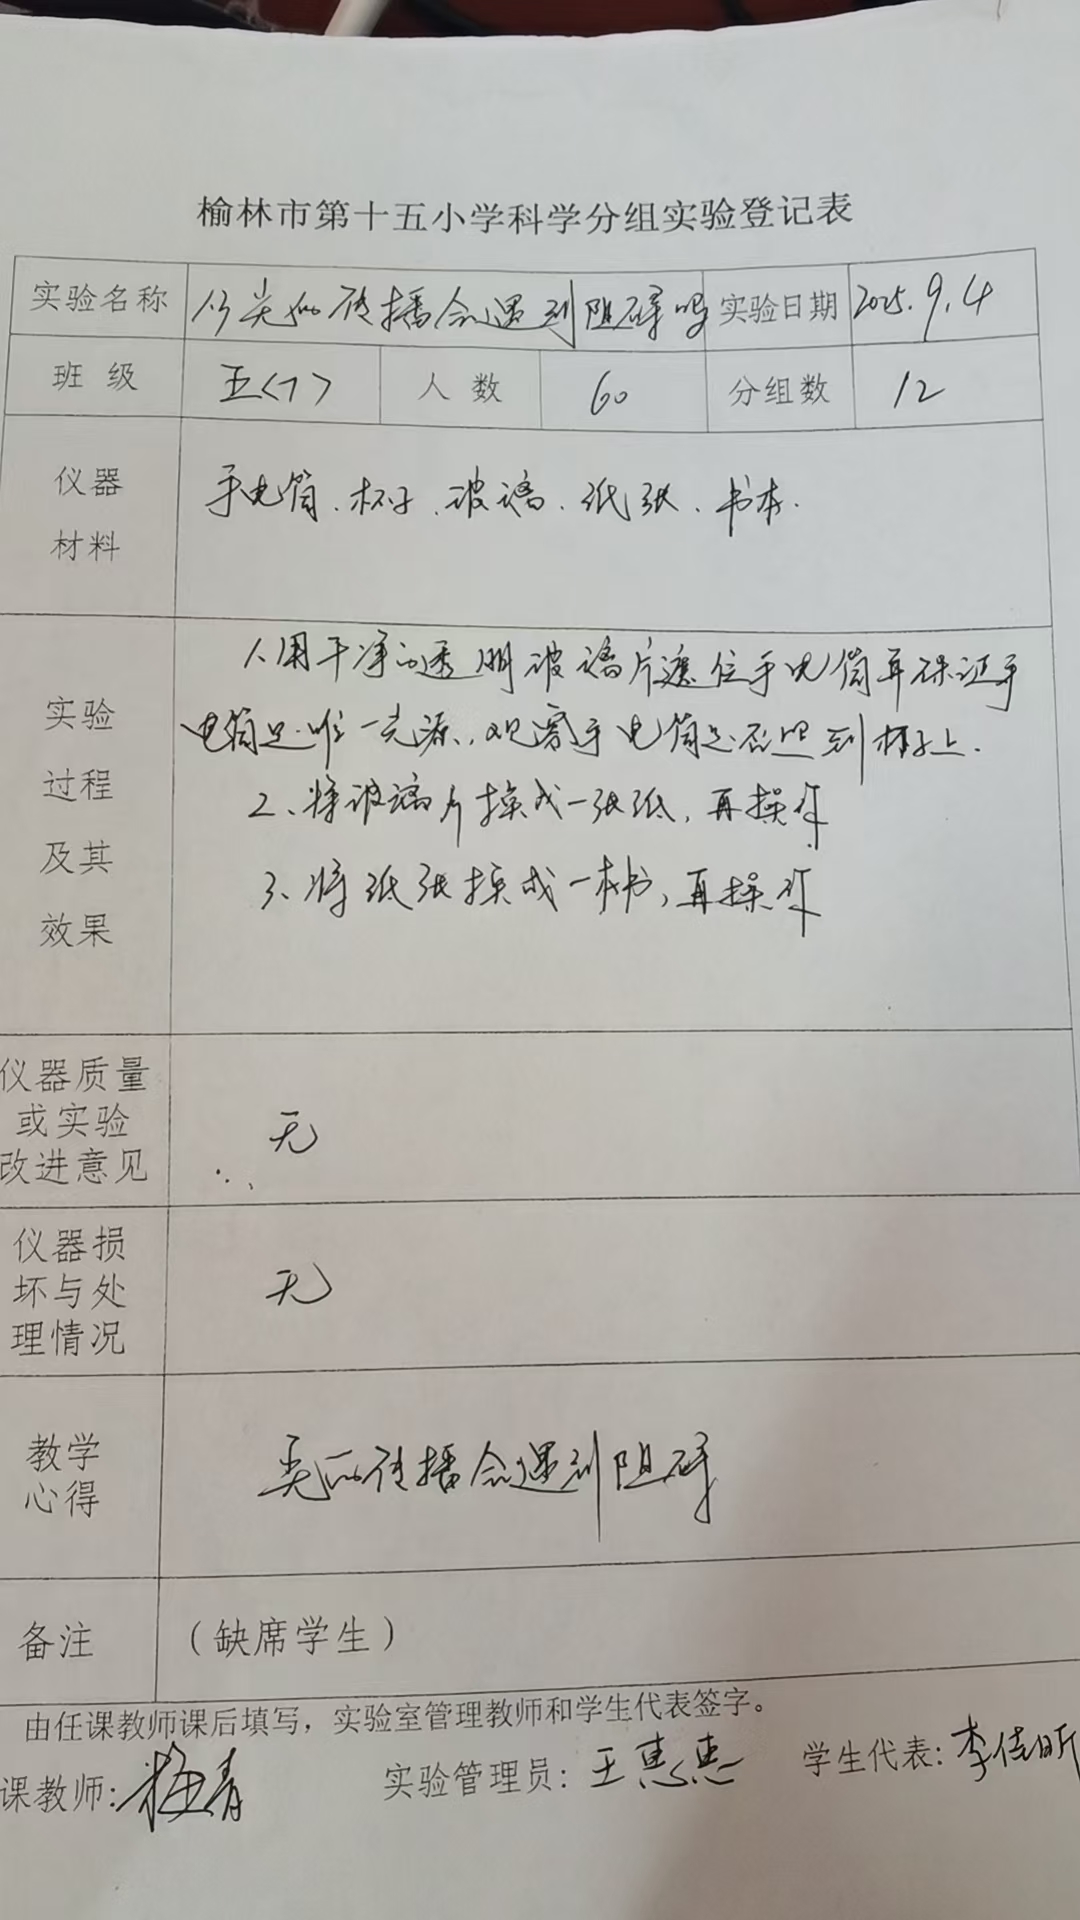 榆林市第十五小学科学分组实验登记表
实验名称 光的传播会遇到阻碍吗 实验日期 2025.9.4
班级 五<7> 人数 60 分组数 12
仪器
材料
手电筒、杯子、玻璃、纸张、书本.
实验
过程
及其
效果
1、用干净的透明玻璃片遮住手电筒并保证手
电筒是唯一光源,观察手电筒是否照到杯子上.
2、将玻璃片换成一张纸,再操作
3、将纸张换成一本书,再操作
仪器质量
或实验
改进意见
无
仪器损
坏与处
理情况
无
教学
心得
光的传播会遇到阻碍
备注 (缺席学生)
由任课教师课后填写,实验室管理教师和学生代表签字。
课教师: 青 实验管理员: 王惠惠 学生代表: 李佳昕